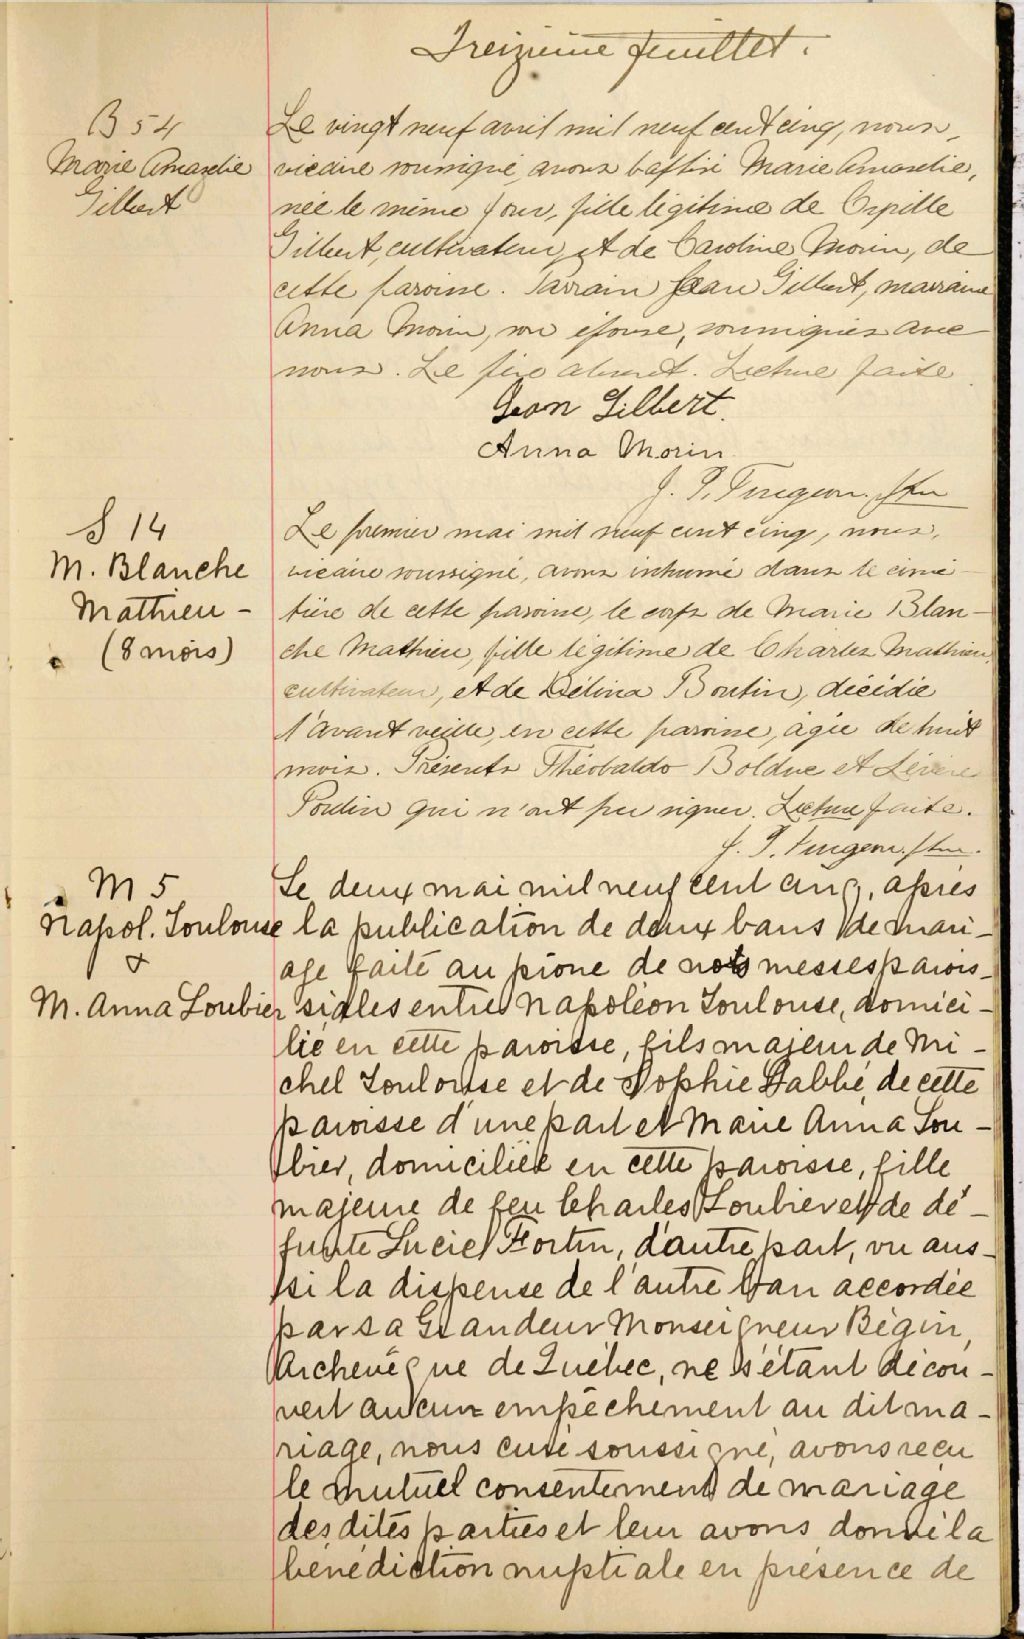 Treizième feuillet.
B 54
Marie Amazelie
Gilbert
Le vingt neuf avril mil neuf cent cinq, nous,
vicaire soussigné, avons baptisé Marie Amazelie,
née le même jour, fille légitime de
Gilbert, cultivateur, et de Caroline Morin, de
cette paroisse. Parrain Jean Gilbert, marraine
Anna Morin, son épouse, soussignés avec
nous. Le père absent. Lecture faite.
Jean Gilbert.
Anna Morin
J. P. Turgeon. Ptre
S 14
M. Blanche
Mathieu -
(8 mois)
Le premier mai mil neuf cent cinq, nous,
vicaire soussigné, avons inhumé dans le cime-
tière de cette paroisse, le corps de Marie Blan-
che Mathieu, fille légitime de Charles Mathieu,
cultivateur, et de Délina Boutin, décédée
l'avant veille, en cette paroisse, âgée de huit
mois. Présents Théobaldo Bolduc et
Poulin qui n'ont pu signer. Lecture faite.
J. P. Turgeon. Ptre.
M 5
Napol. Toulouse
&
M. Anna Loubier
Le deux mai mil neuf cent cinq, après
la publication de deux bans de mari-
age faite au prône de nos messes parois-
siales entre Napoléon Toulouse, domici-
lié en cette paroisse, fils majeur de Mi-
chel Toulouse et de Sophie Labbé, de cette
paroisse d'une part et Marie Anna Lou-
bier, domiciliée en cette paroisse, fille
majeure de feu Charles Loubier et de dé-
funte Lucie Fortin, d'autre part, vu aus-
si la dispense de l'autre ban accordée
par sa Grandeur Monseigneur Bégin,
Archevêque de Québec, ne s'étant décou-
vert aucun empêchement au dit ma-
riage, nous curé soussigné, avons reçu
le mutuel consentement de mariage
des dites parties et leur avons donné la
bénédiction nuptiale en présence de